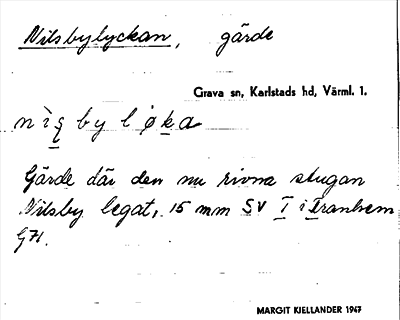 Nilsbylyckan, gärde
Grava sn, Karlstads hd, Värml. l.
nìs by løka
Gärde där den nu rivna stugan
Nilsby legat, 15 mm SV I i Tranhem
G71.
MARGIT KJELLANDER 1947